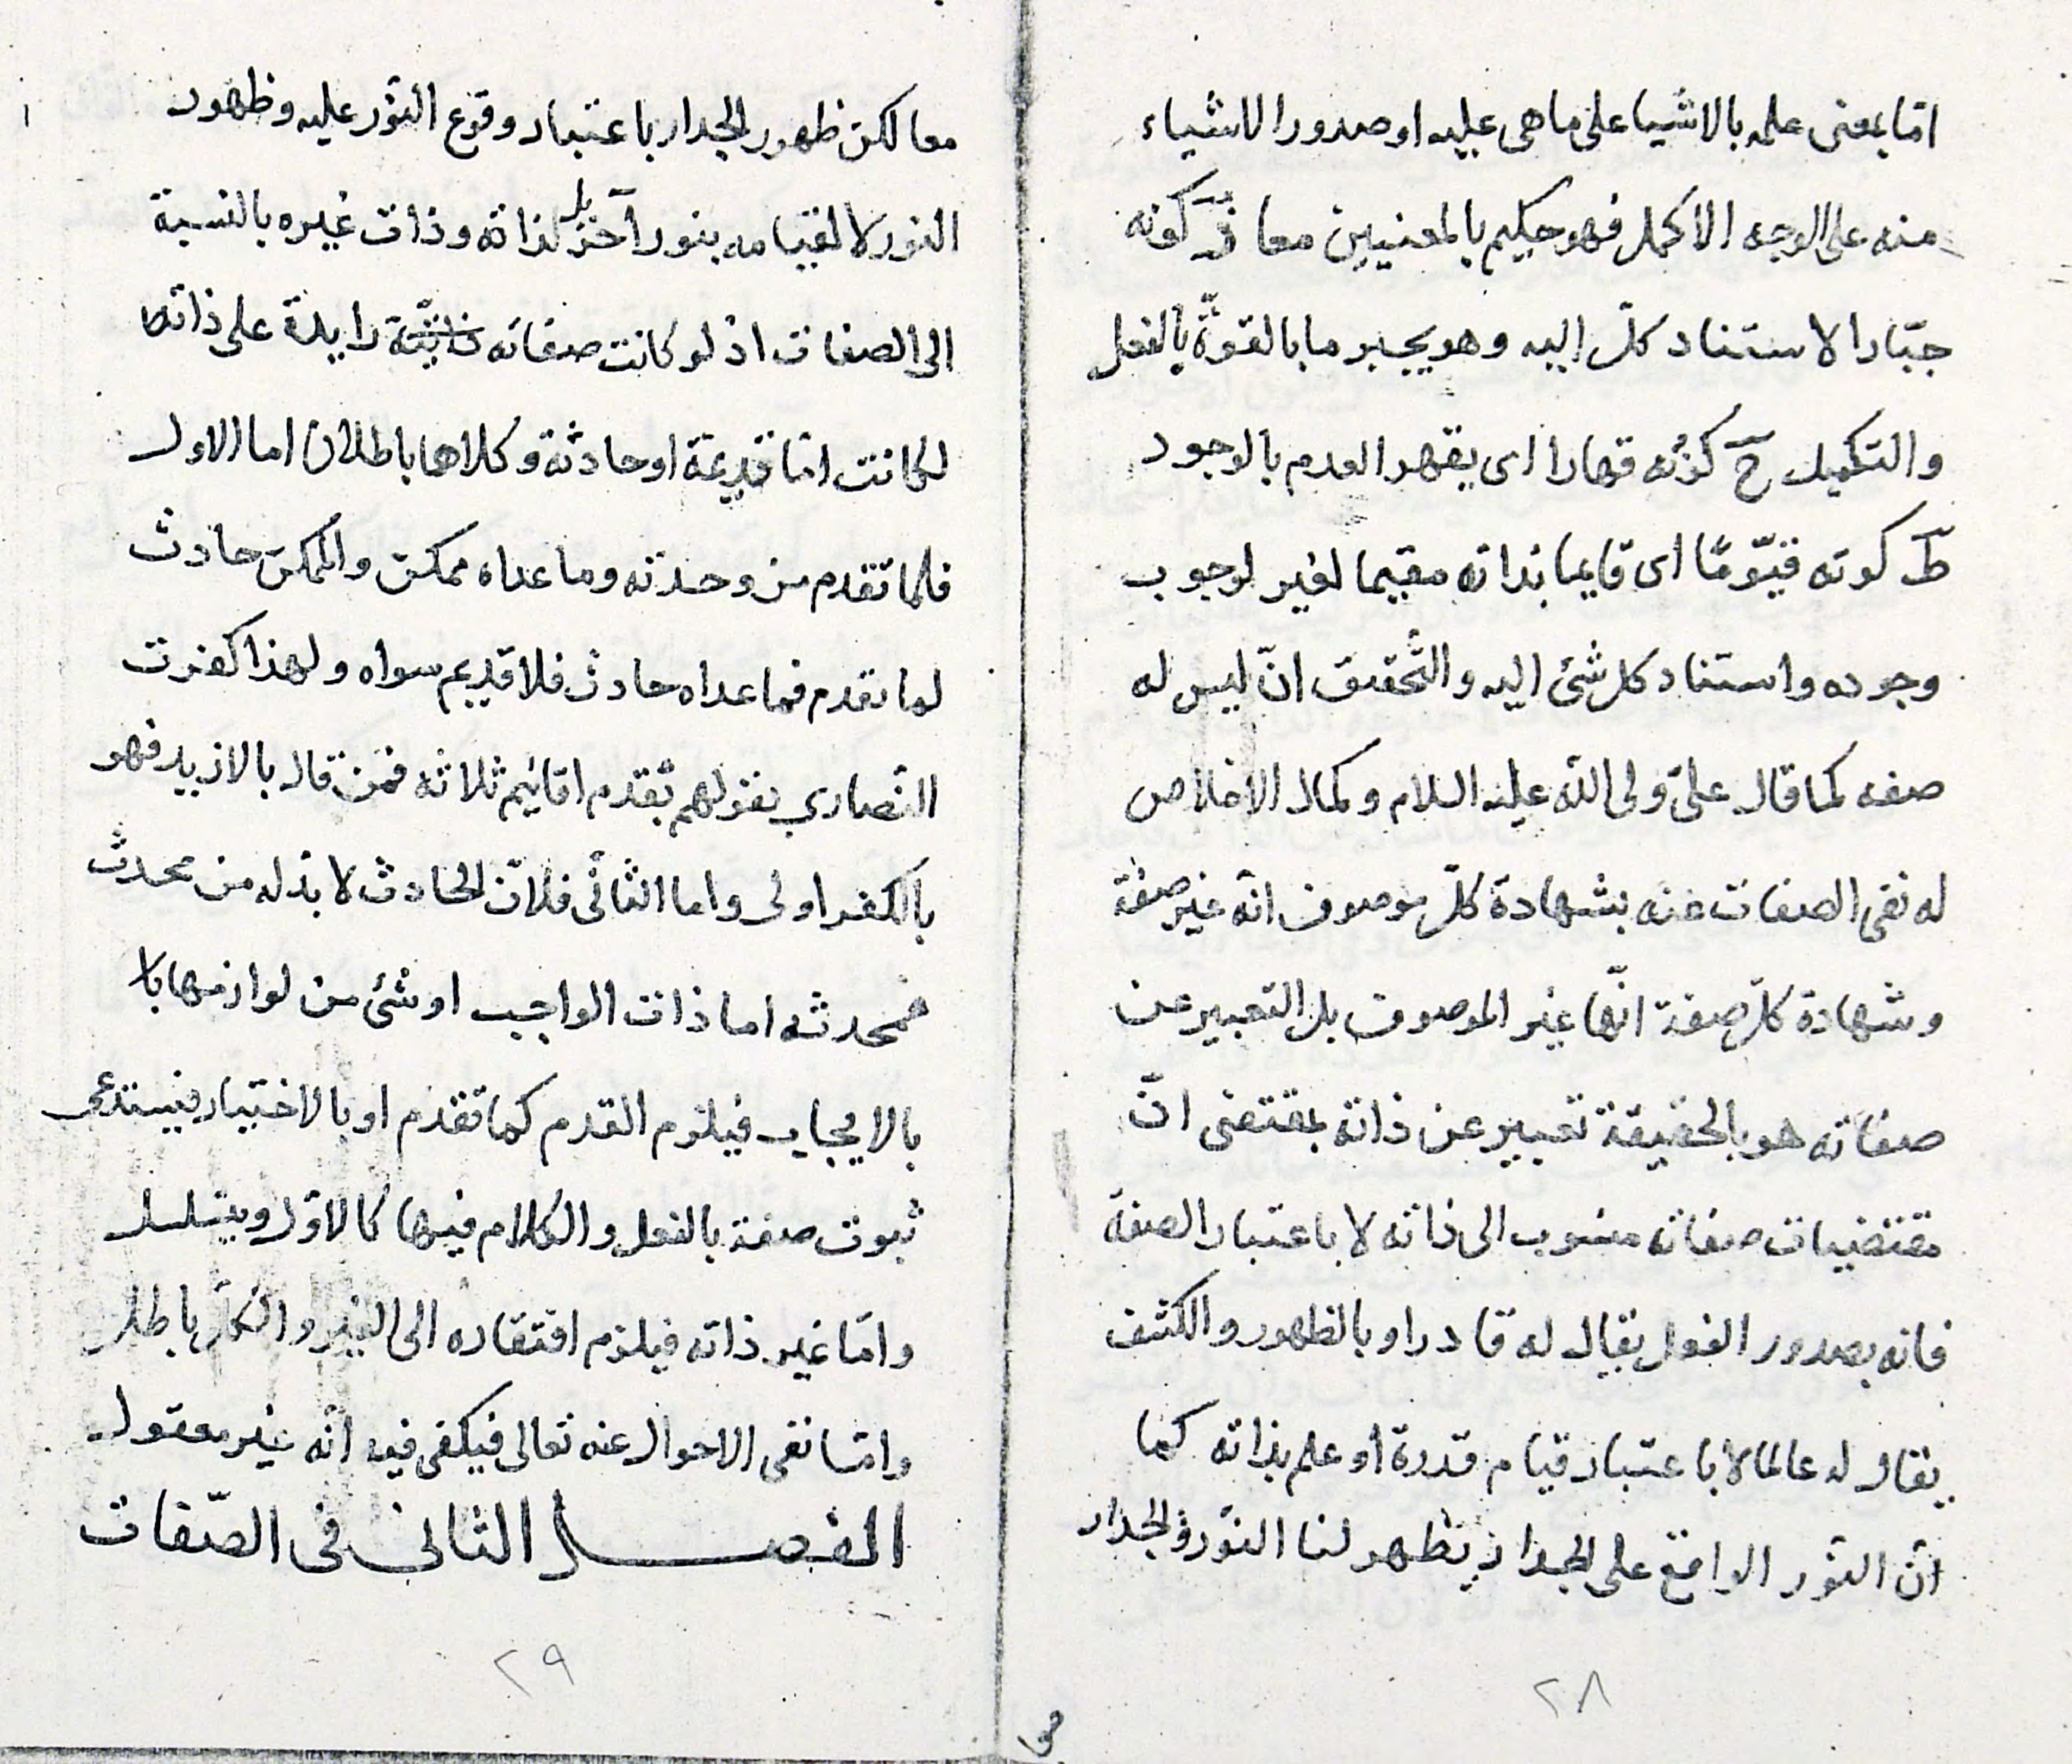 امّا بمعنى علمه بالاشيا على ما هى عليه او صدور الاشياء
منه على الوجه الاكمل فهو حكيم بالمعنيين معا زَ كونه
جبّارا لاستناد كلّ اليه وهو يجبر ما بالقوّة بالفعل
والتكميل حَ كونه قهارا اى يقهر العدم بالوجود
طَ كونه قيّومًا اى قايما بذاته مقيما لغير لوجوب
وجوده واستناد كل شئ اليه والتّحقيق انّ ليس له
صفه كما قال علىّ ولى اللّه عليه السلام وكمال الاخلاص
له نفى الصفات عنه بشهادة كلّ موصوف انّه غير صفة
وشهادة كلّ صفة انّها غير الموصوف بل التعبير عن
صفاته هو بالحقيقة تعبير عن ذاته بمقتضى انّ
مقتضيات صفاته منسوب الى ذاته لا باعتبار الصفة
فانه بصدور الفعل يقال له قادرا وبالظهور والكشف
يقال له عالما لا باعتبار قيام قدرة او علم بذاته كما
انّ النّور الواقع على الجدار يظهر لنا النّور والجدار
٢٨
معا لكن ظهور الجدار باعتبار وقوع النّور عليه وظهور
النور لا لقيامه بنور آخر بل لذاته وذات غيره بالنسبة
الى الصفات اذ لو كانت صفاته زايدة على ذاته
لكانت امّا قديمة او حادثة وكلاهما باطلان اما الاول
فلما تقدم من وحدته وما عداه ممكن والممكن حادث
لما تقدم فما عداه حادث فلا قديم سواه ولهذا كفرت
النّصارى بقولهم بقدم اقانيم ثلاثه فمن قال بالازيد فهو
بالكفر اولى واما الثانى فلانّ الحادث لا بدّ له من محدث
فمحدثه اما ذات الواجب او شئ من لوازمها
بالايجاب فيلزم القدم كما تقدم او بالاختيار فيستدعى
ثبوت صفة بالفعل والكلام فيها كالاوّل ويتسلسل
وامّا غير ذاته فيلزم افتقاره الى الغير والكلّ باطل
وامّا نفى الاحوال عنه تعالى فيكفى فيه انّه غير معقول
الفصل الثانى فى الصّفات
٢٩